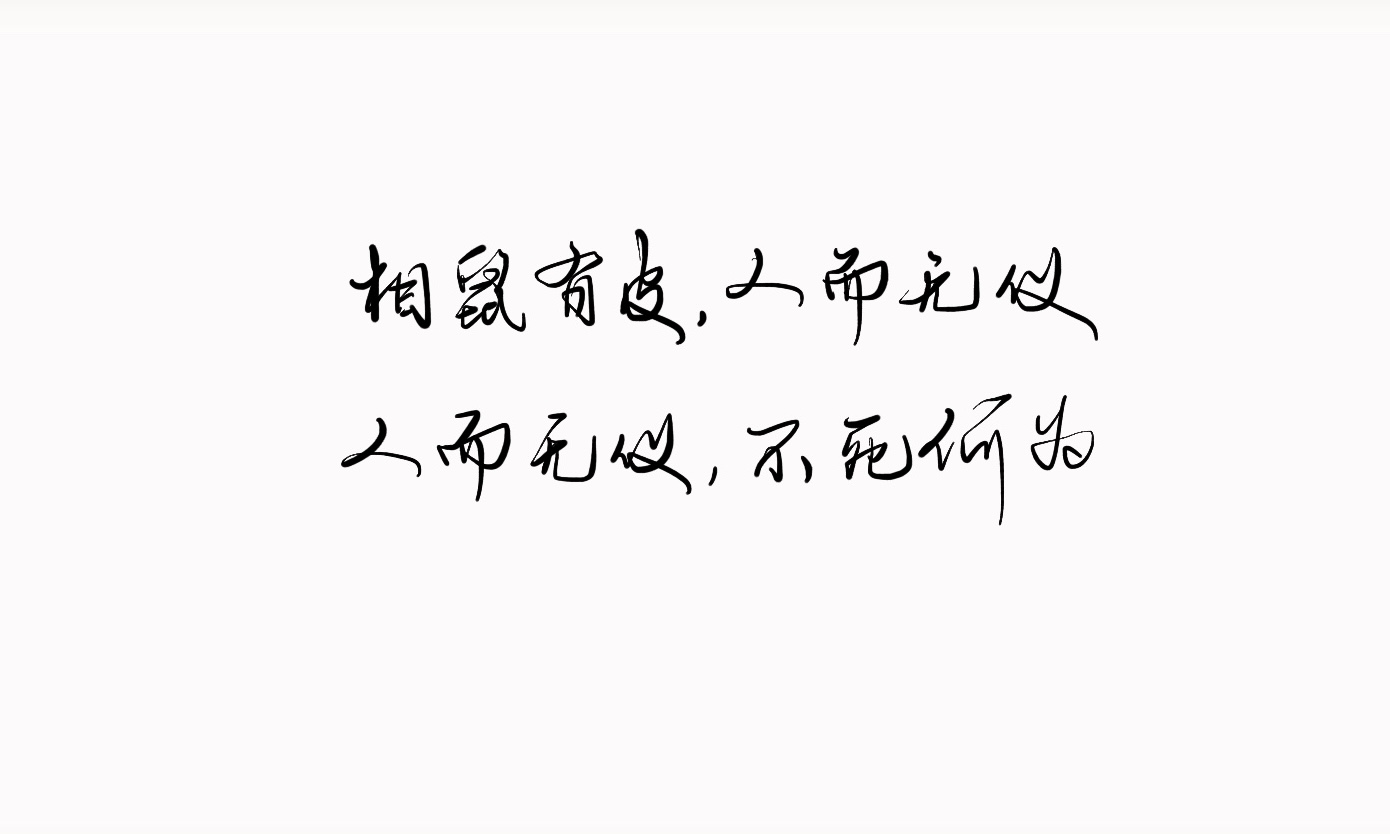 相鼠有皮,人而无仪
人而无仪,不死何为